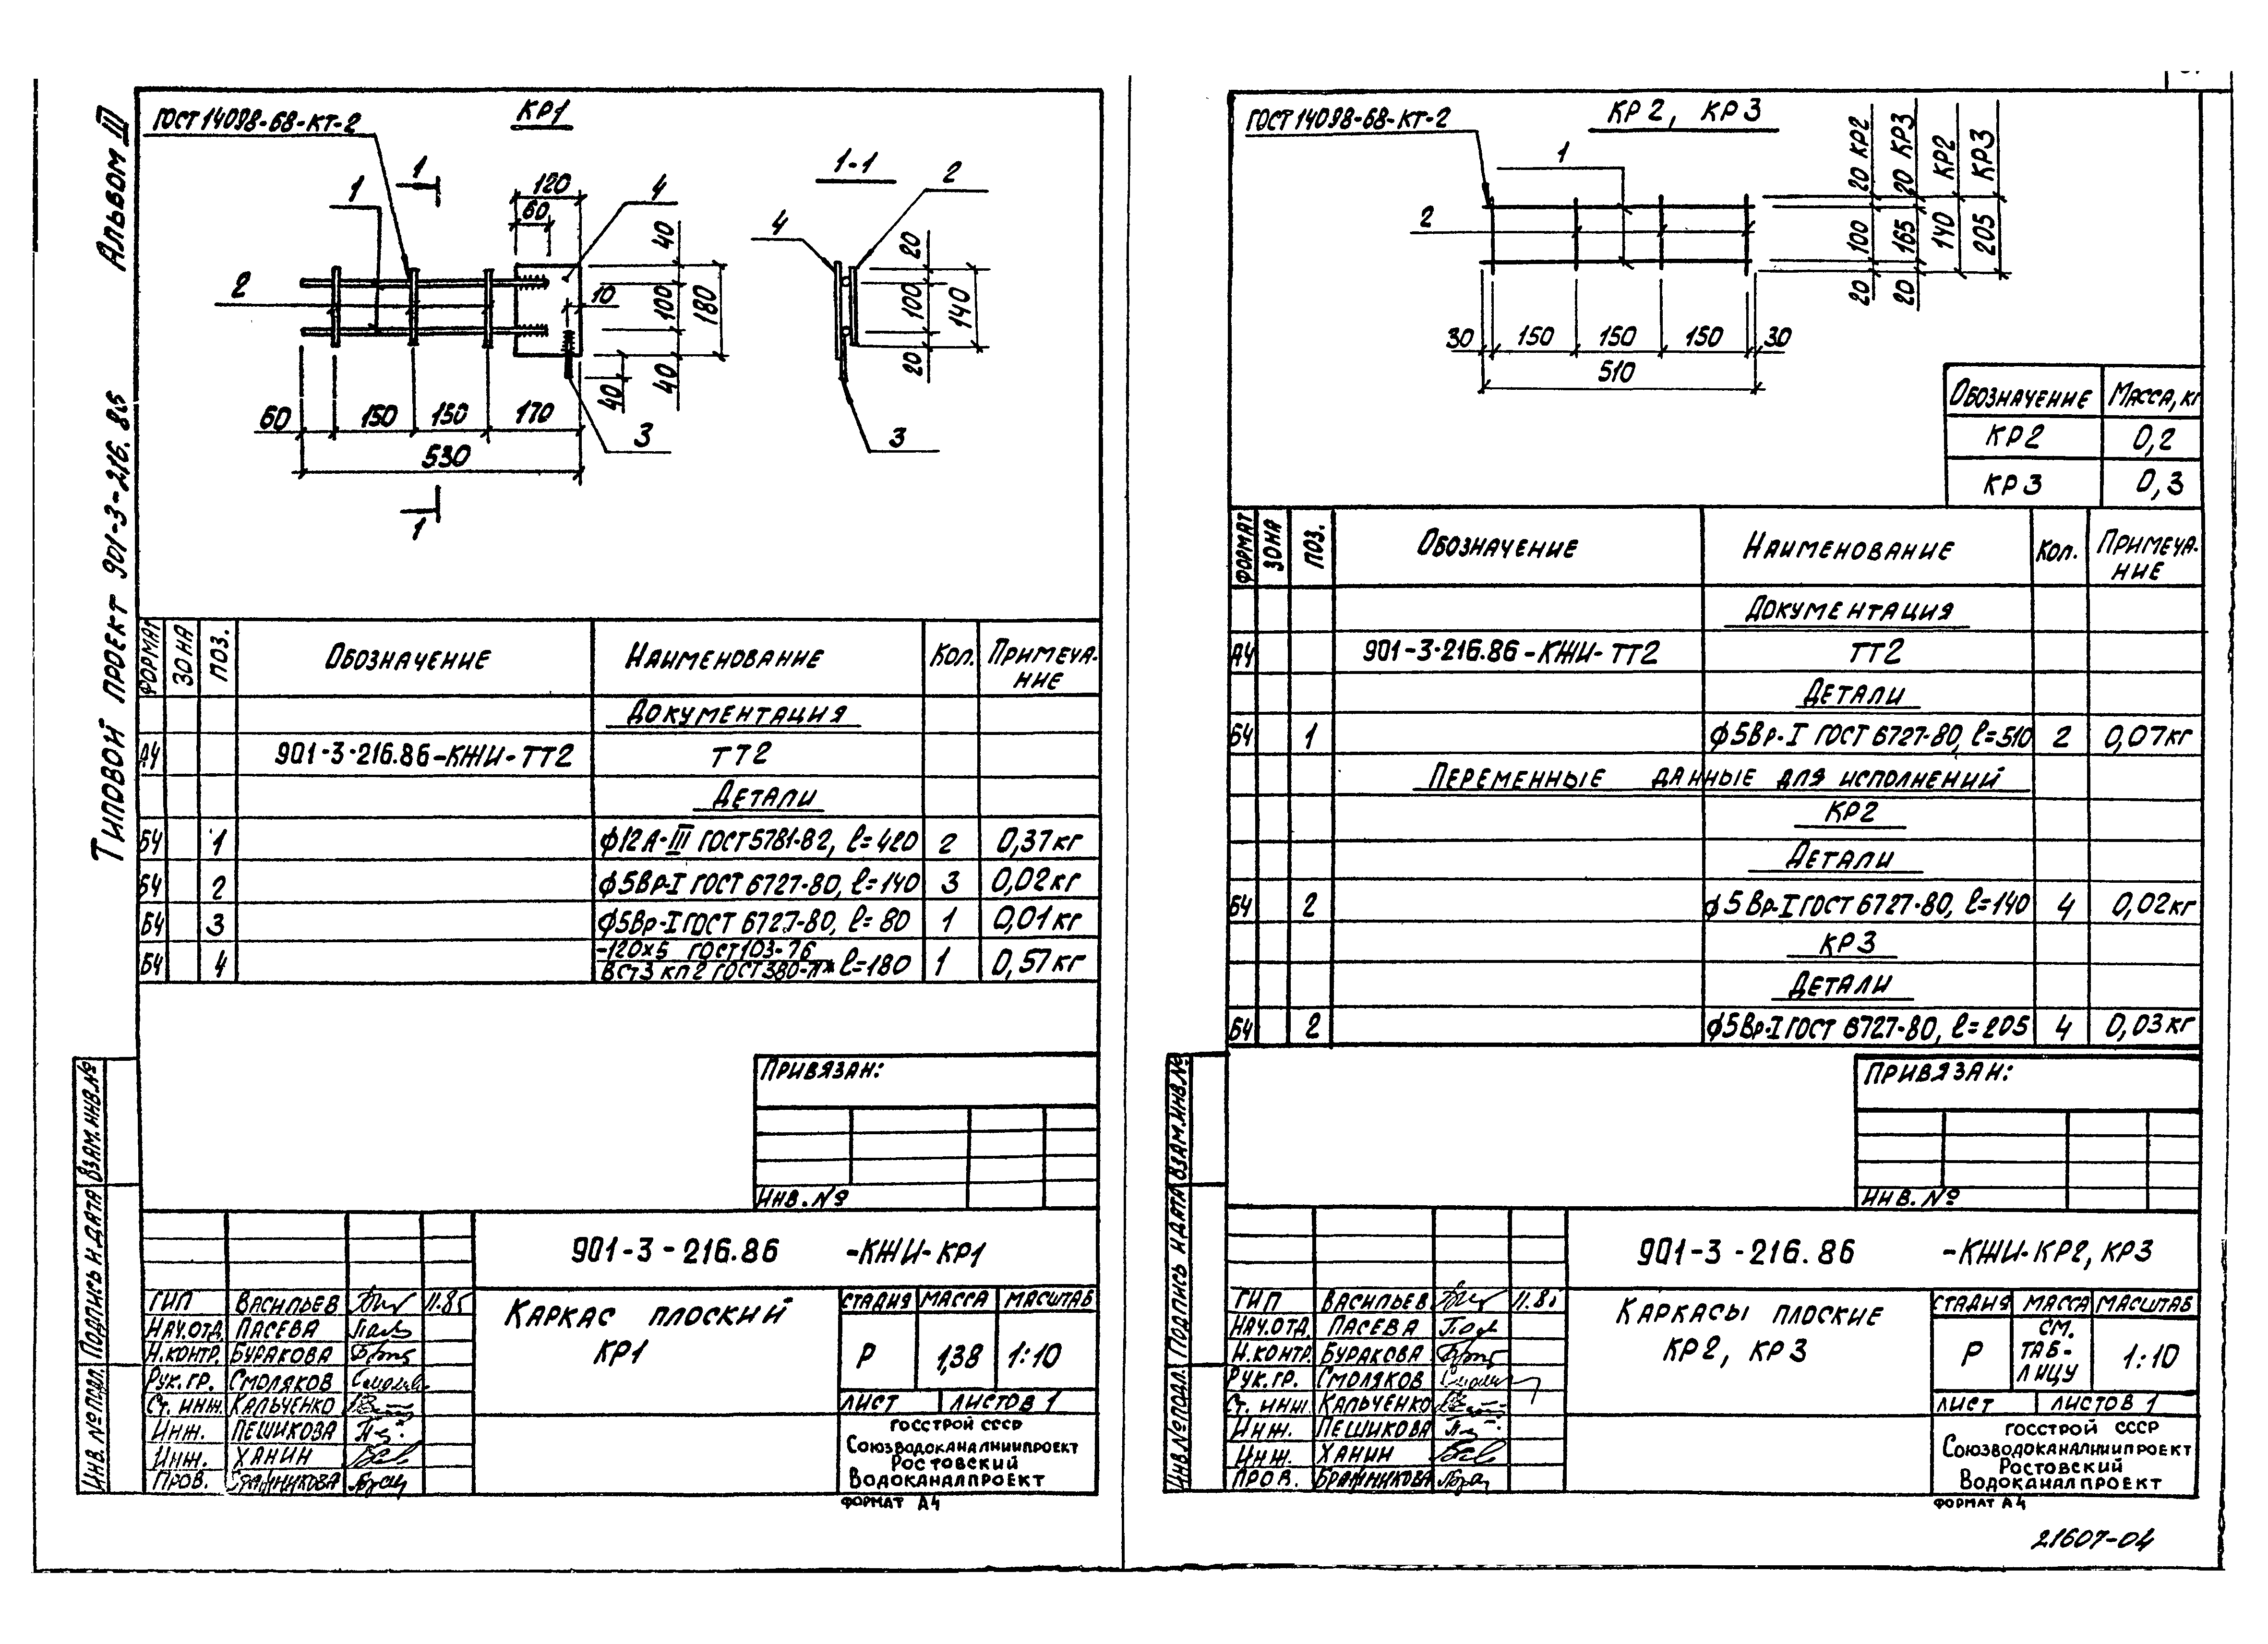 Альбом III
Типовой проект 901-3-216.86
КР1
ГОСТ 14098-68-КТ-2
1
1
2
120
60
4
10
40
100
40
180
40
3
60
150
150
170
530
1
1-1
4
2
20
100
20
140
3
ФОРМАТ
ЗОНА
ПОЗ.
Обозначение
Наименование
Кол.
Примеча-
ние
Документация
А4 901-3-216.86-КЖИ-ТТ2 ТТ2
Детали
Б4 1 ф12А-III ГОСТ 5781-82, l=420 2 0,37кг
Б4 2 ф5Вр-I ГОСТ 6727-80, l=140 3 0,02кг
Б4 3 ф5Вр-I ГОСТ 6727-80, l=80 1 0,01кг
-120х5 ГОСТ 103-76
Б4 4 ВСт3 кп2 ГОСТ 380-71* l=180 1 0,57кг
Привязан:
Инв. №
Взам. инв. №
Подпись и дата
Инв. № подл.
901-3-216.86 -КЖИ-КР1
ГИП Васильев 11.85
Нач.отд. Пасева
Н.контр. Буракова
Рук.гр. Смоляков
Ст. инж. Кальченко
Инж. Пешикова
Инж. Ханин
Пров. Бражникова
Каркас плоский
КР1
Стадия Масса Масштаб
Р 1,38 1:10
Лист Листов 1
Госстрой СССР
Союзводоканалниипроект
Ростовский
Водоканалпроект
Формат А4
КР2, КР3
ГОСТ 14098-68-КТ-2
1
2
20 КР2
20 КР3
КР2
КР3
100
165
140
205
20
20
30
150
150
150
30
510
Обозначение Масса, кг
КР2 0,2
КР3 0,3
ФОРМАТ
ЗОНА
ПОЗ.
Обозначение
Наименование
Кол.
Примеча-
ние
Документация
А4 901-3-216.86-КЖИ-ТТ2 ТТ2
Детали
Б4 1 ф5Вр-I ГОСТ 6727-80, l=510 2 0,07кг
Переменные данные для исполнений
КР2
Детали
Б4 2 ф5Вр-I ГОСТ 6727-80, l=140 4 0,02кг
КР3
Детали
Б4 2 ф5Вр-I ГОСТ 6727-80, l=205 4 0,03кг
Привязан:
Инв. №
Взам. инв. №
Подпись и дата
Инв. № подл.
901-3-216.86 -КЖИ-КР2, КР3
ГИП Васильев
Нач.отд. Пасева
Н.контр. Буракова
Рук.гр. Смоляков
Ст. инж. Кальченко
Инж. Пешикова
Инж. Ханин
Пров. Бражникова
Каркасы плоские
КР2, КР3
Стадия Масса Масштаб
Р
См.
таб-
лицу
1:10
Лист Листов 1
Госстрой СССР
Союзводоканалниипроект
Ростовский
Водоканалпроект
Формат А4
21607-04